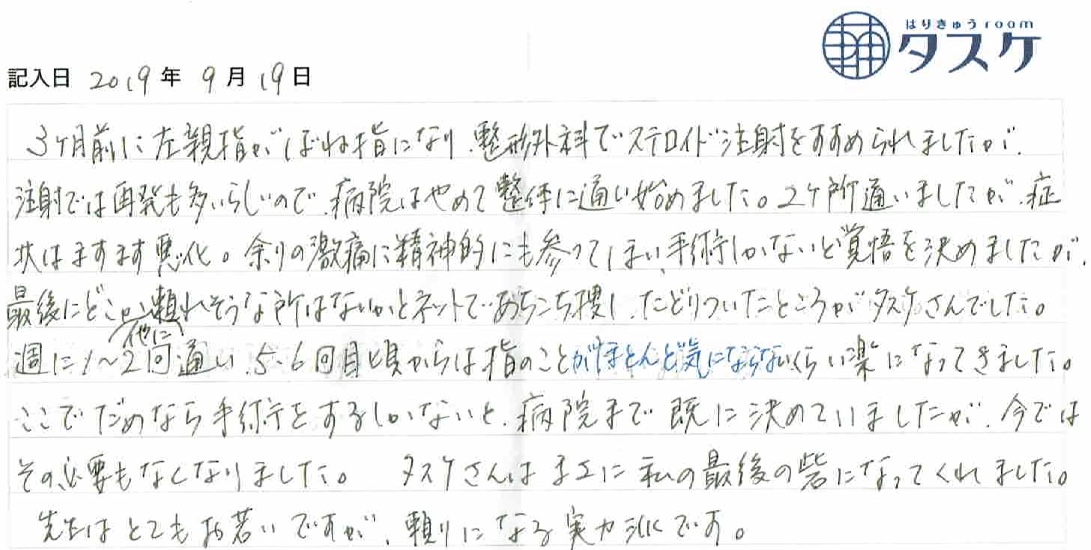 はりきゅうroom
タスケ
記入日 2019年 9月 19日
3ヶ月前に左親指がばね指になり、整形外科でステロイド注射をすすめられましたが、
注射では再発も多いらしいので、病院はやめて整体に通い始めました。2ヶ所通いましたが、症
状はますます悪化。余りの激痛に精神的にも参ってしまい、手術しかないと覚悟を決めましたが、
最後にどこか他に頼れそうな所はないかとネットであちこち捜し、たどりついたところがタスケさんでした。
週に1〜2回通い、5、6回目頃からは指のことがほとんど気にならないくらい楽になってきました。
ここでだめなら手術をするしかないと、病院まで既に決めていましたが、今では
その必要もなくなりました。 タスケさんはまさに私の最後の砦になってくれました。
先生はとてもお若いですが、頼りになる実力派です。